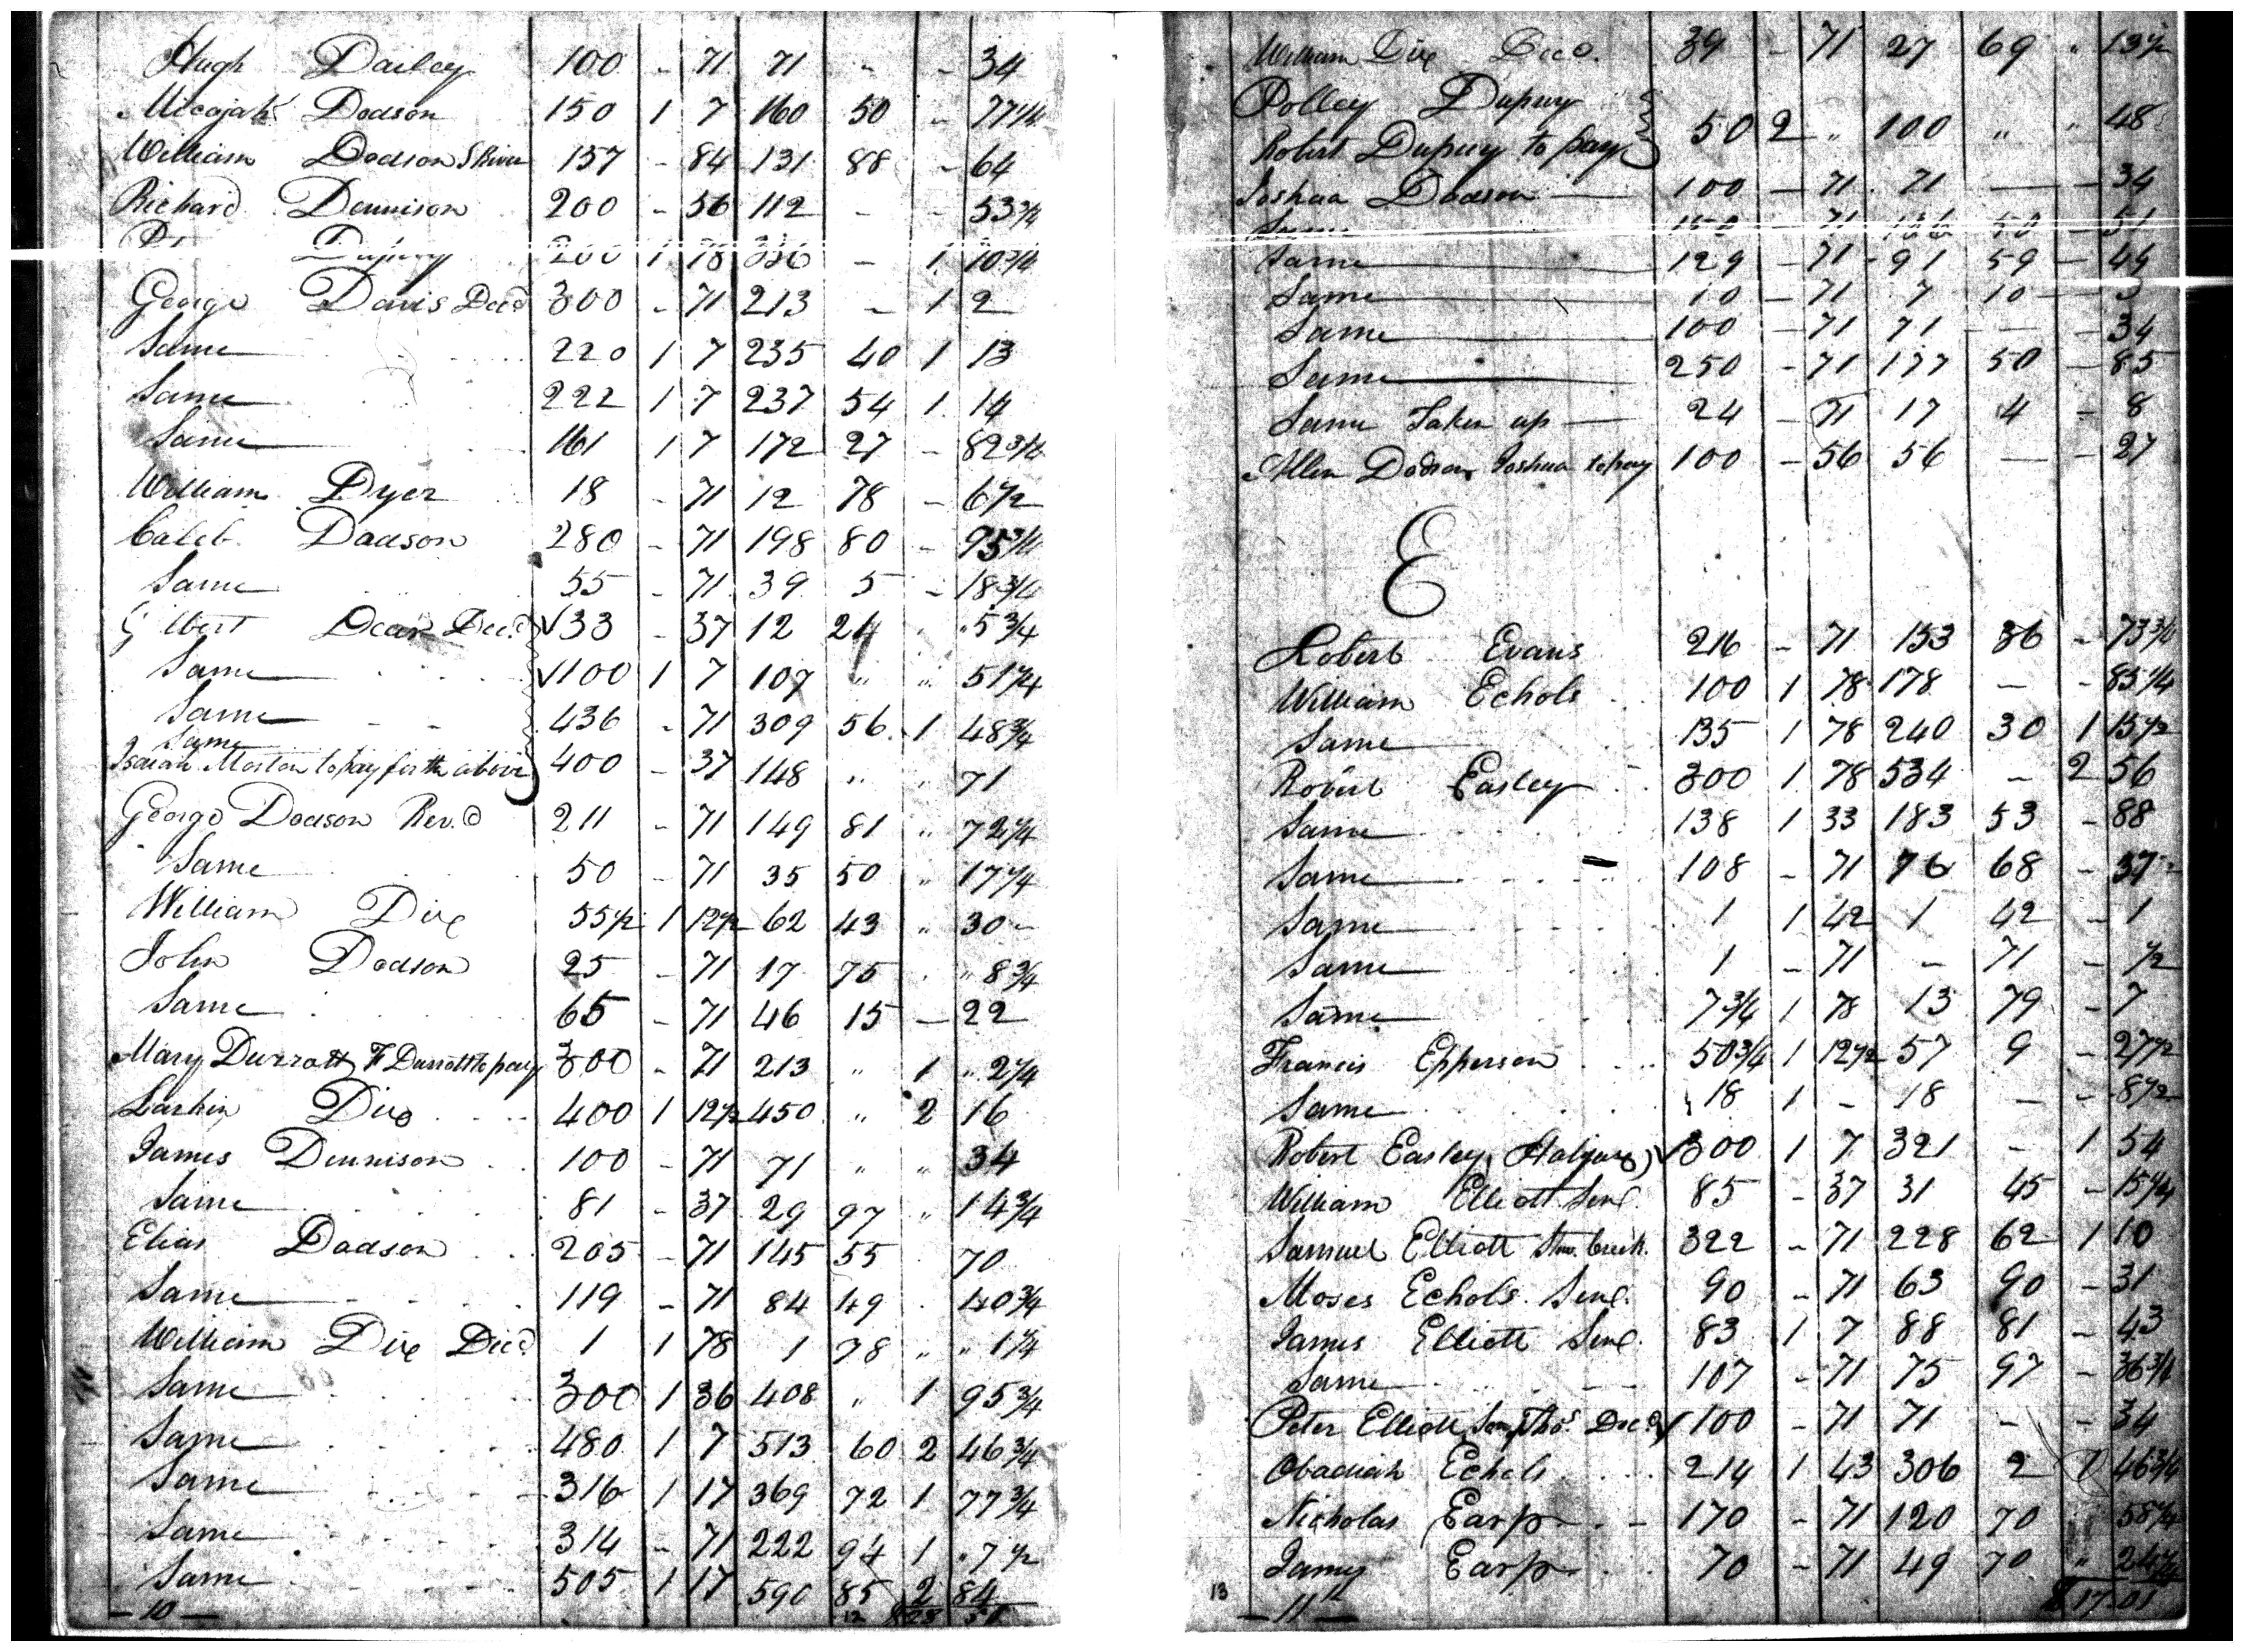 Hugh Dailey 100 - 71 71 - - 34
Micajah Dodson 150 1 7 160 50 - 77 1/4
William Dodson S River 157 - 84 131 88 - 64
Richard Dennison 200 - 56 112 - - 53 3/4
Dupuy 200 1 78 356 - 1 70 3/4
George Davis Decd 300 - 71 213 - 1 2
Same 220 1 7 235 40 1 13
Same 222 1 7 237 54 1 14
Same 161 1 7 172 27 - 82 3/4
William Dyer 18 - 71 12 78 - 6 1/2
Caleb Dodson 280 - 71 198 80 - 95 3/4
Same 55 - 71 39 5 - 18 3/4
Gilbert Dear Decd √33 - 37 12 21 " " 5 3/4
Same √100 1 7 107 " " 51 1/4
Same 436 - 71 309 56 1 48 3/4
Same
Isaiah Morton to pay for the above 400 - 37 148 " " 71
George Dodson Revd 211 - 71 149 81 " 72 1/4
Same 50 - 71 35 50 " 17 1/4
William Dix 55 1/2 1 12 1/2 62 43 " 30 -
John Dodson 25 - 71 17 75 " " 8 3/4
Same 65 - 71 46 15 - 22
Mary Durrott F Durrott to pay 300 - 71 213 " 1 " 2 1/4
Larkin Dix 400 1 12 1/2 450 " 2 16
James Dennison 100 - 71 71 " " 34
Same 81 - 37 29 97 " 14 3/4
Elias Dodson 205 - 71 145 55 70
Same 119 - 71 84 49 40 3/4
William Dix Decd 1 1 78 1 78 " " 1 1/4
Same 300 1 36 408 " 1 95 3/4
Same 480 1 7 513 60 2 46 3/4
Same 316 1 17 369 72 1 77 3/4
Same 314 - 71 222 94 1 " 7 1/2
Same 505 1 17 590 85 2 84
- 10 -
William Dix Decd. 39 - 71 27 69 " 13 1/2
Polley Dupuy
Robert Dupuy to pay } 50 2 " 100 " " 48
Joshua Dodson 100 - 71 71 - - 34
Same 150 - 71 106 50 - 51
Same 129 - 71 91 59 - 44
Same 10 - 71 7 10 - 3
Same 100 - 71 71 - - 34
Same 250 - 71 177 50 - 85
Same Taken up 24 - 71 17 4 - 8
Allen Dodson Joshua to pay 100 - 56 56 - - 27
E
Robert Evans 216 - 71 153 36 - 73 3/4
William Echols 100 1 78 178 - - 85 1/4
Same 135 1 78 240 30 1 15 1/2
Robert Easley 300 1 78 534 - 2 56
Same 138 1 33 183 53 - 88
Same 108 - 71 76 68 - 37
Same 1 1 42 1 42 - 1
Same 1 - 71 - 71 - 1/2
Same 7 3/4 1 78 13 79 - 7
Francis Epperson 50 3/4 1 12 1/2 57 9 - 27 1/2
Same 18 1 - 18 - - 8 1/2
Robert Easley (Halifax) √300 1 7 321 - 1 54
William Elliott Senr. 85 - 37 31 45 - 15 1/4
Samuel Elliott Creek. 322 - 71 228 62 1 10
Moses Echols Senr. 90 - 71 63 90 - 31
James Elliott Senr. 83 1 7 88 81 - 43
Same 107 - 71 75 97 - 36 3/4
Peter Elliott Son Thos Decd √100 - 71 71 - - 34
Obadiah Echols 214 1 43 306 2 1 46 3/4
Nicholas Earp 170 - 71 120 70 58 1/4
Jamy Earp 70 - 71 49 70 " 24 1/4
13 - 11th - $17-01